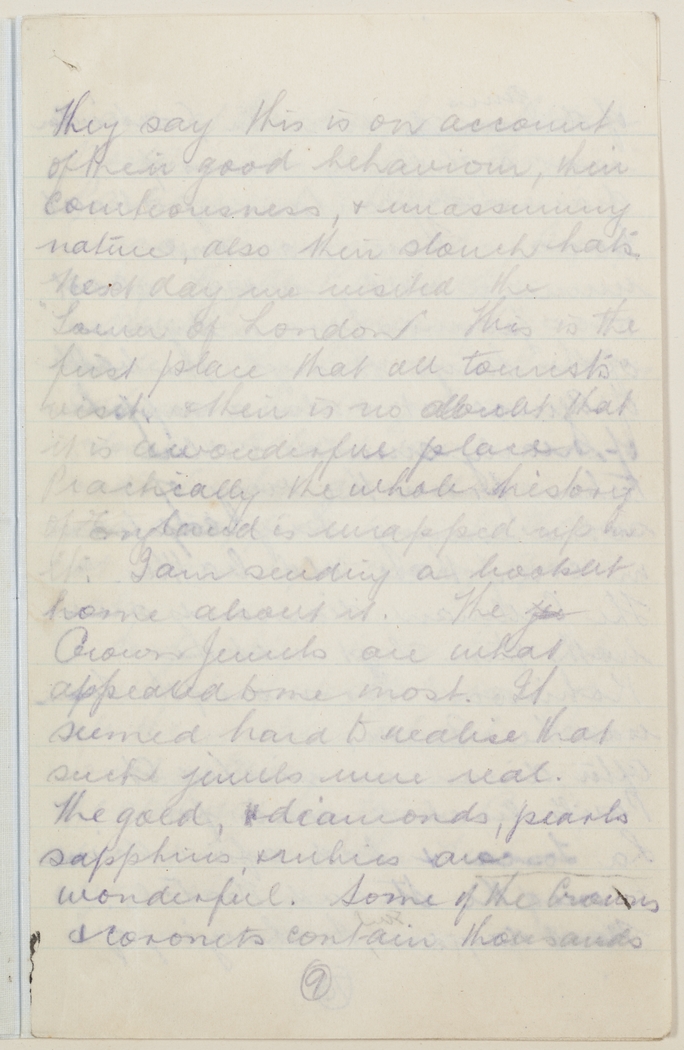 They say this is on account
of their good behaviour, their
courteousness, & unassuming
nature, also their slouch hats.
Next day we visited the
"Tower of London". This is the
first place that all tourists
visit. & their is no doubt that
it is a wonderful place.
Practically the whole history
of England is wrapped up in
it. I am sending a booklet
home about it. The
Crown Jewels are what
appealed to me most. It
seemed hard to realise that
such jewels were real.
The gold, diamonds, pearls
sapphires, & rubies are
wonderful. Some of the Crowns
& coronets contain thousands
9